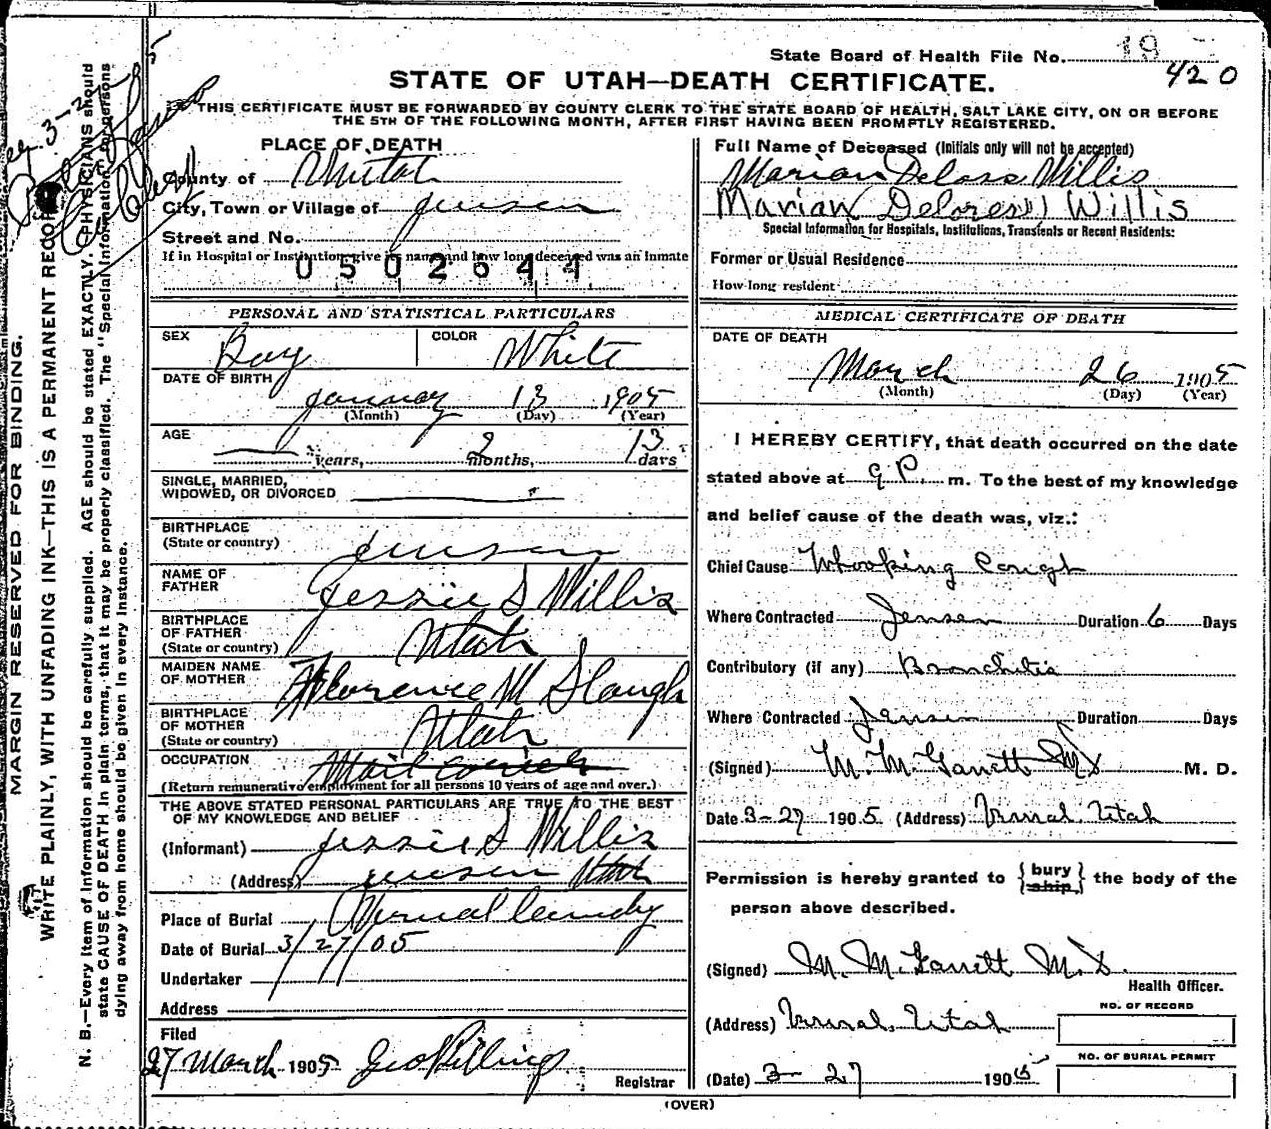 State Board of Health File No. 19
420
STATE OF UTAH—DEATH CERTIFICATE.
THIS CERTIFICATE MUST BE FORWARDED BY COUNTY CLERK TO THE STATE BOARD OF HEALTH, SALT LAKE CITY, ON OR BEFORE
THE 5TH OF THE FOLLOWING MONTH, AFTER FIRST HAVING BEEN PROMPTLY REGISTERED.
MARGIN RESERVED FOR BINDING.
WRITE PLAINLY, WITH UNFADING INK—THIS IS A PERMANENT RECORD
N. B.—Every item of information should be carefully supplied. AGE should be stated EXACTLY. PHYSICIANS should
state CAUSE OF DEATH in plain terms, that it may be properly classified. The "Special Information" for persons
dying away from home should be given in every instance.
PLACE OF DEATH
County of
City, Town or Village of Jensen
Street and No.
If in Hospital or Institution, give its name and how long deceased was an inmate
0502644
PERSONAL AND STATISTICAL PARTICULARS
SEX Boy COLOR White
DATE OF BIRTH
January 13 1905
(Month) (Day) (Year)
AGE
— years, 2 months, 13 days
SINGLE, MARRIED,
WIDOWED, OR DIVORCED
BIRTHPLACE
(State or country) Jensen
NAME OF
FATHER Jessie S Willis
BIRTHPLACE
OF FATHER
(State or country) Utah
MAIDEN NAME
OF MOTHER Florence M Slaugh
BIRTHPLACE
OF MOTHER
(State or country) Utah
OCCUPATION Mail
(Return remunerative employment for all persons 10 years of age and over.)
THE ABOVE STATED PERSONAL PARTICULARS ARE TRUE TO THE BEST
OF MY KNOWLEDGE AND BELIEF
(Informant) Jessie S Willis
(Address) Jensen Utah
Place of Burial Vernal
Date of Burial 3/27/05
Undertaker
Address
Filed
27 March 1905 Geo Billings
Registrar
Full Name of Deceased (Initials only will not be accepted)
Marian Deloss Willis
Marian Delores Willis
Special Information for Hospitals, Institutions, Transients or Recent Residents:
Former or Usual Residence
How long resident
MEDICAL CERTIFICATE OF DEATH
DATE OF DEATH
March 26 1905
(Month) (Day) (Year)
I HEREBY CERTIFY, that death occurred on the date
stated above at 9 P. m. To the best of my knowledge
and belief cause of the death was, viz.:
Chief Cause Whooping Cough
Where Contracted Jensen Duration 6 Days
Contributory (if any) Bronchitis
Where Contracted Jensen Duration Days
(Signed) M. M. Garrett MD M. D.
Date 3-27 1905 (Address) Vernal, Utah
Permission is hereby granted to {bury ship} the body of the
person above described.
(Signed) M. M. Garrett M.D.
Health Officer.
(Address) Vernal, Utah
NO. OF RECORD
NO. OF BURIAL PERMIT
(Date) 3-27 1905
(OVER)